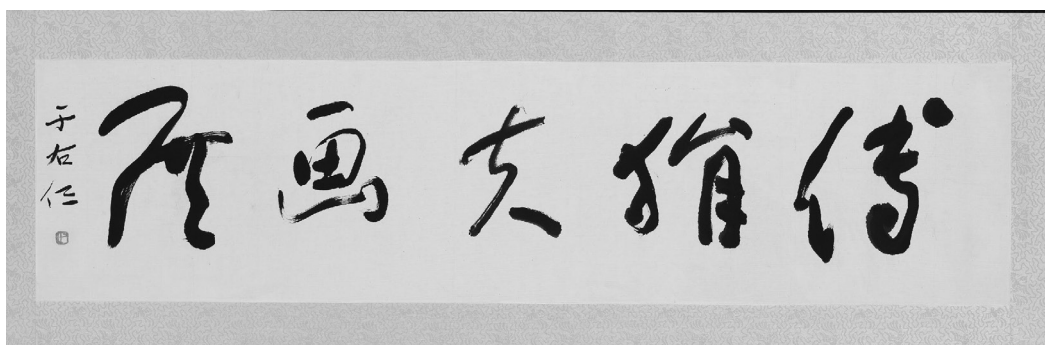 傅狷夫画展
于右任